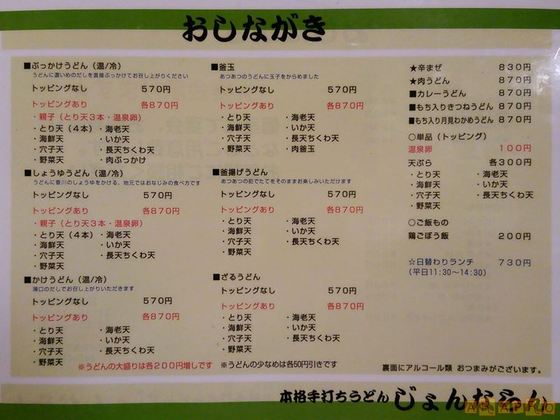 おしながき
■ぶっかけうどん（温/冷）
うどんに濃いめのだしを直接ぶっかけてお召し上がりください
トッピングなし 570円
トッピングあり 各870円
・親子（とり天３本・温泉卵）
・とり天（４本）・海老天
・海鮮天 ・いか天
・穴子天 ・長天ちくわ天
・野菜天 ・肉ぶっかけ
■しょうゆうどん（温/冷）
うどんに香川のしょうゆをかける、地元ではおなじみの食べ方です
トッピングなし 570円
トッピングあり 各870円
・親子（とり天３本・温泉卵）
・とり天（４本）・海老天
・海鮮天 ・いか天
・穴子天 ・長天ちくわ天
・野菜天
■かけうどん（温/冷）
薄口のだしでお召し上がりいただきます
トッピングなし 570円
トッピングあり 各870円
・とり天 ・海老天
・海鮮天 ・いか天
・穴子天 ・長天ちくわ天
・野菜天
※うどんの大盛りは各200円増しです
■釜玉
あつあつのうどんに玉子をからめました
トッピングなし 570円
トッピングあり 各870円
・とり天 ・海老天
・海鮮天 ・いか天
・穴子天 ・長天ちくわ天
・野菜天 ・肉釜玉
■釜揚げうどん
あつあつの茹でたてをそのままお楽しみいただけます
トッピングなし 570円
トッピングあり 各870円
・とり天 ・海老天
・海鮮天 ・いか天
・穴子天 ・長天ちくわ天
・野菜天
■ざるうどん
トッピングなし 570円
トッピングあり 各870円
・とり天 ・海老天
・海鮮天 ・いか天
・穴子天 ・長天ちくわ天
・野菜天
※うどんの少なめは各50円引きです
★辛まぜ 830円
★肉うどん 870円
■カレーうどん 870円
■もち入りきつねうどん 870円
■もち入り月見わかめうどん 870円
○単品（トッピング）
温泉卵 100円
天ぷら 各300円
・とり天 ・海老天
・海鮮天 ・いか天
・穴子天 ・長天ちくわ天
・野菜天
○ご飯もの
鶏ごぼう飯 200円
☆日替わりランチ 730円
（平日11:30～14:30）
裏面にアルコール類 おつまみがございます。
本格手打ちうどん じょんならん